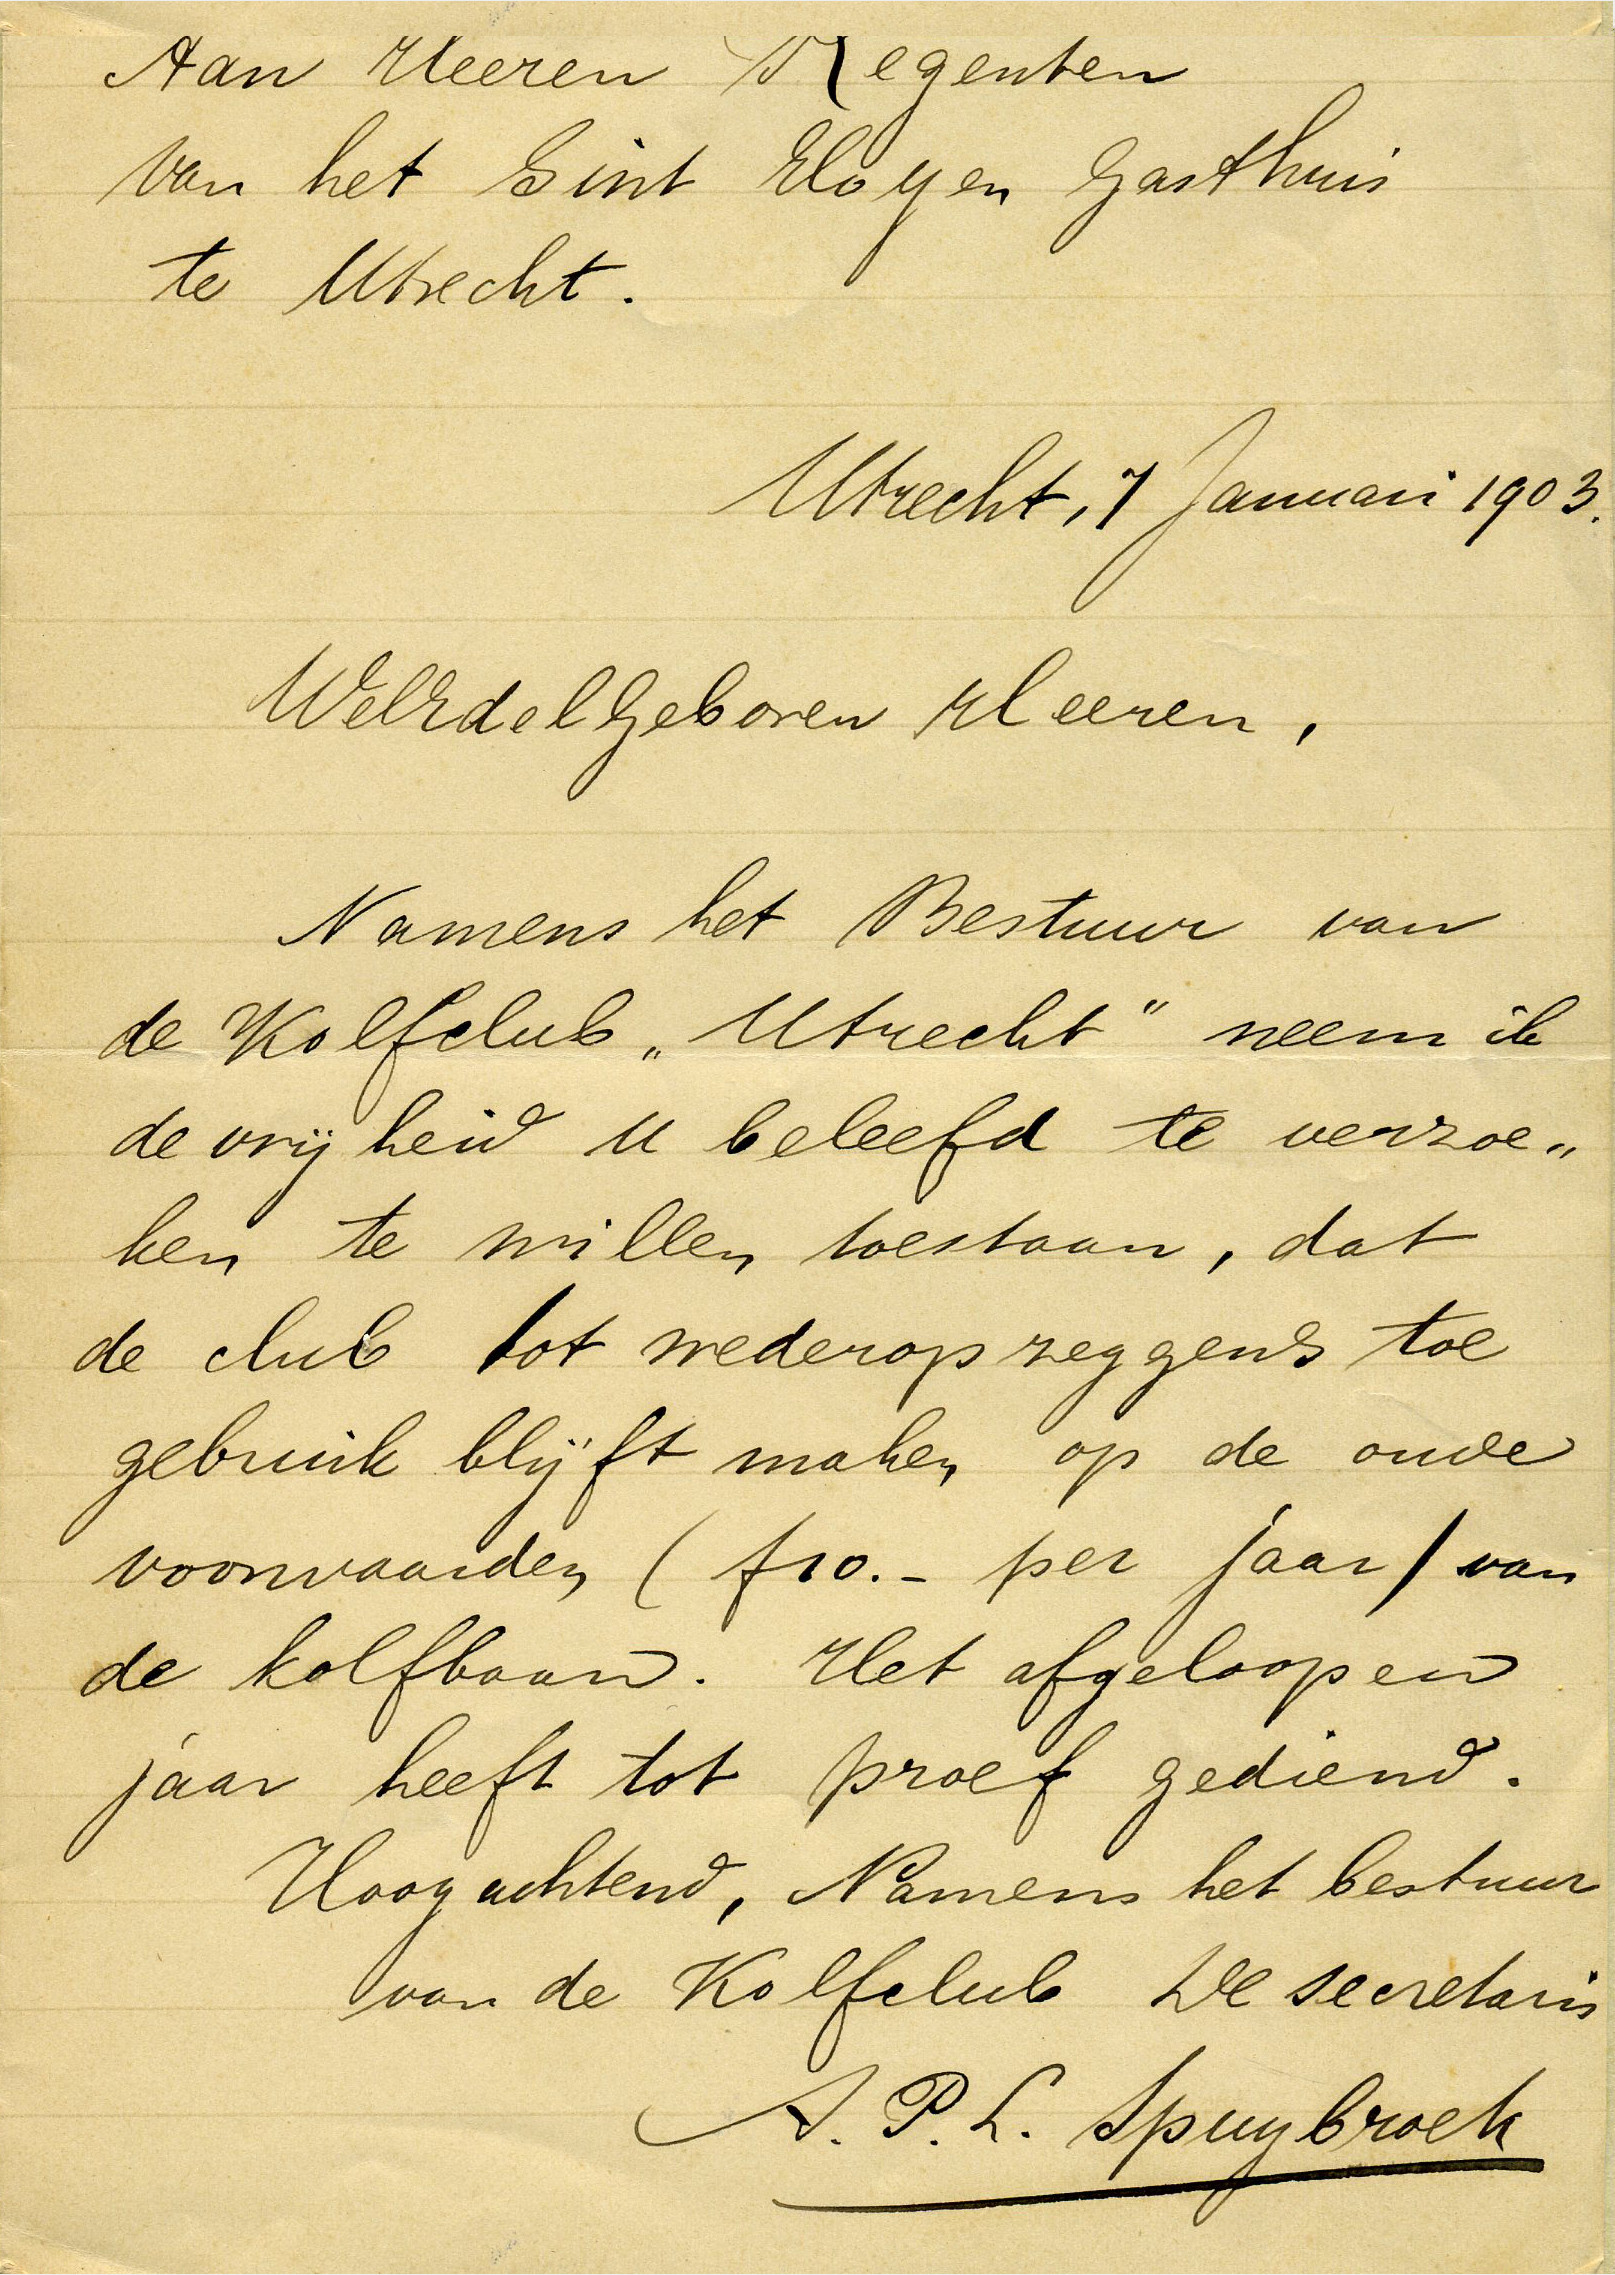 Aan Heeren Regenten
van het Sint Eloyen Gasthuis
te Utrecht.
Utrecht, 7 Januari 1903.
WelEdelGeboren Heeren,
Namens het Bestuur van
de Kolfclub „Utrecht" neem ik
de vrijheid U beleefd te verzoe„
ken te willen toestaan, dat
de club tot wederopzeggens toe
gebruik blijft maken op de oude
voorwaarden (f 10.- per jaar) van
de kolfbaan. Het afgeloopen
jaar heeft tot proef gediend.
Hoogachtend, Namens het bestuur
van de Kolfclub De secretaris
A. P. L. Spuybroek